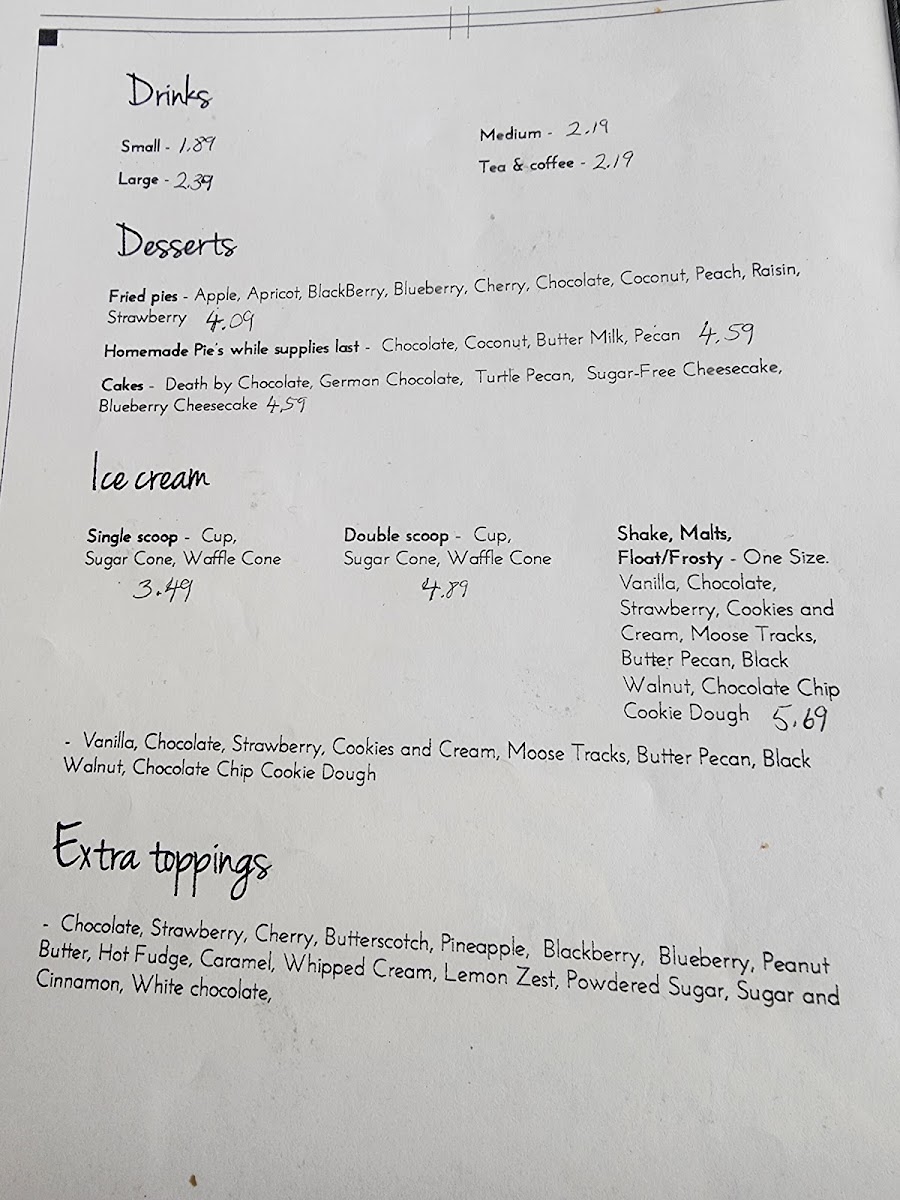 Drinks
Small - 1.89
Medium - 2.19
Large - 2.39
Tea & coffee - 2.19
Desserts
Fried pies - Apple, Apricot, BlackBerry, Blueberry, Cherry, Chocolate, Coconut, Peach, Raisin,
Strawberry 4.09
Homemade Pie's while supplies last - Chocolate, Coconut, Butter Milk, Pecan 4.59
Cakes - Death by Chocolate, German Chocolate, Turtle Pecan, Sugar-Free Cheesecake,
Blueberry Cheesecake 4.59
Ice cream
Single scoop - Cup,
Sugar Cone, Waffle Cone
3.49
Double scoop - Cup,
Sugar Cone, Waffle Cone
4.89
Shake, Malts,
Float/Frosty - One Size.
Vanilla, Chocolate,
Strawberry, Cookies and
Cream, Moose Tracks,
Butter Pecan, Black
Walnut, Chocolate Chip
Cookie Dough 5.69
- Vanilla, Chocolate, Strawberry, Cookies and Cream, Moose Tracks, Butter Pecan, Black
Walnut, Chocolate Chip Cookie Dough
Extra toppings
- Chocolate, Strawberry, Cherry, Butterscotch, Pineapple, Blackberry, Blueberry, Peanut
Butter, Hot Fudge, Caramel, Whipped Cream, Lemon Zest, Powdered Sugar, Sugar and
Cinnamon, White chocolate,